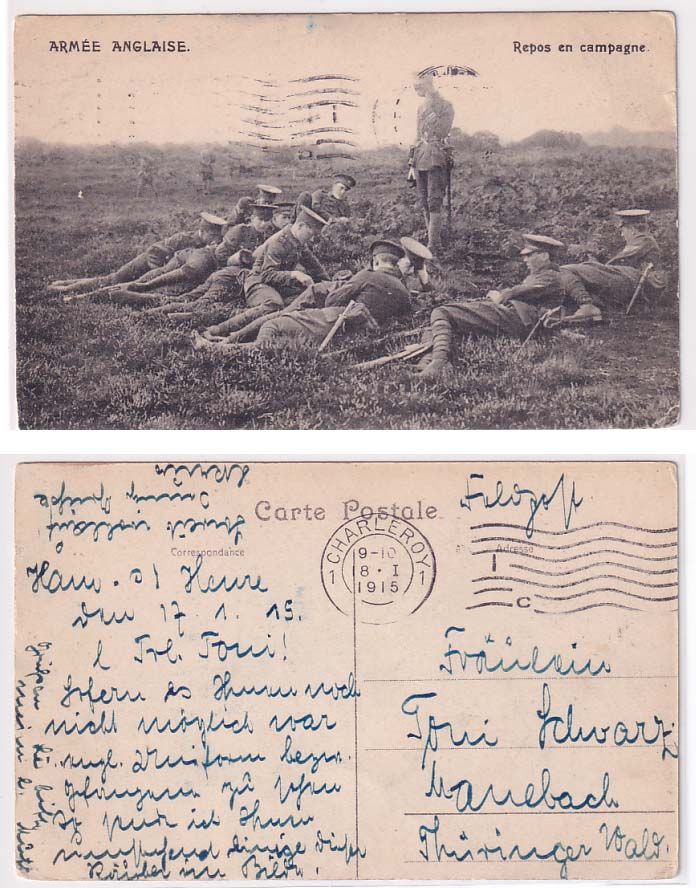 ARMÉE ANGLAISE.
Repos en campagne.
Carte Postale
Correspondance
Adresse
CHARLEROY
1 1
9-10
18 · I
1915
I
C
Feldpost.
Ham - s/ Heure
den 17. 1. 15.
l Frl. Toni!
Sofern es Ihnen noch
nicht möglich war
engl. Uniform bezw.
Gefangene zu sehen
so sende ich Ihnen
umstehend einige dieser
Räuber im Bilde.
Grüßen Sie bitte
Fräulein
Toni Schwarz
Manebach
Thüringer Wald.